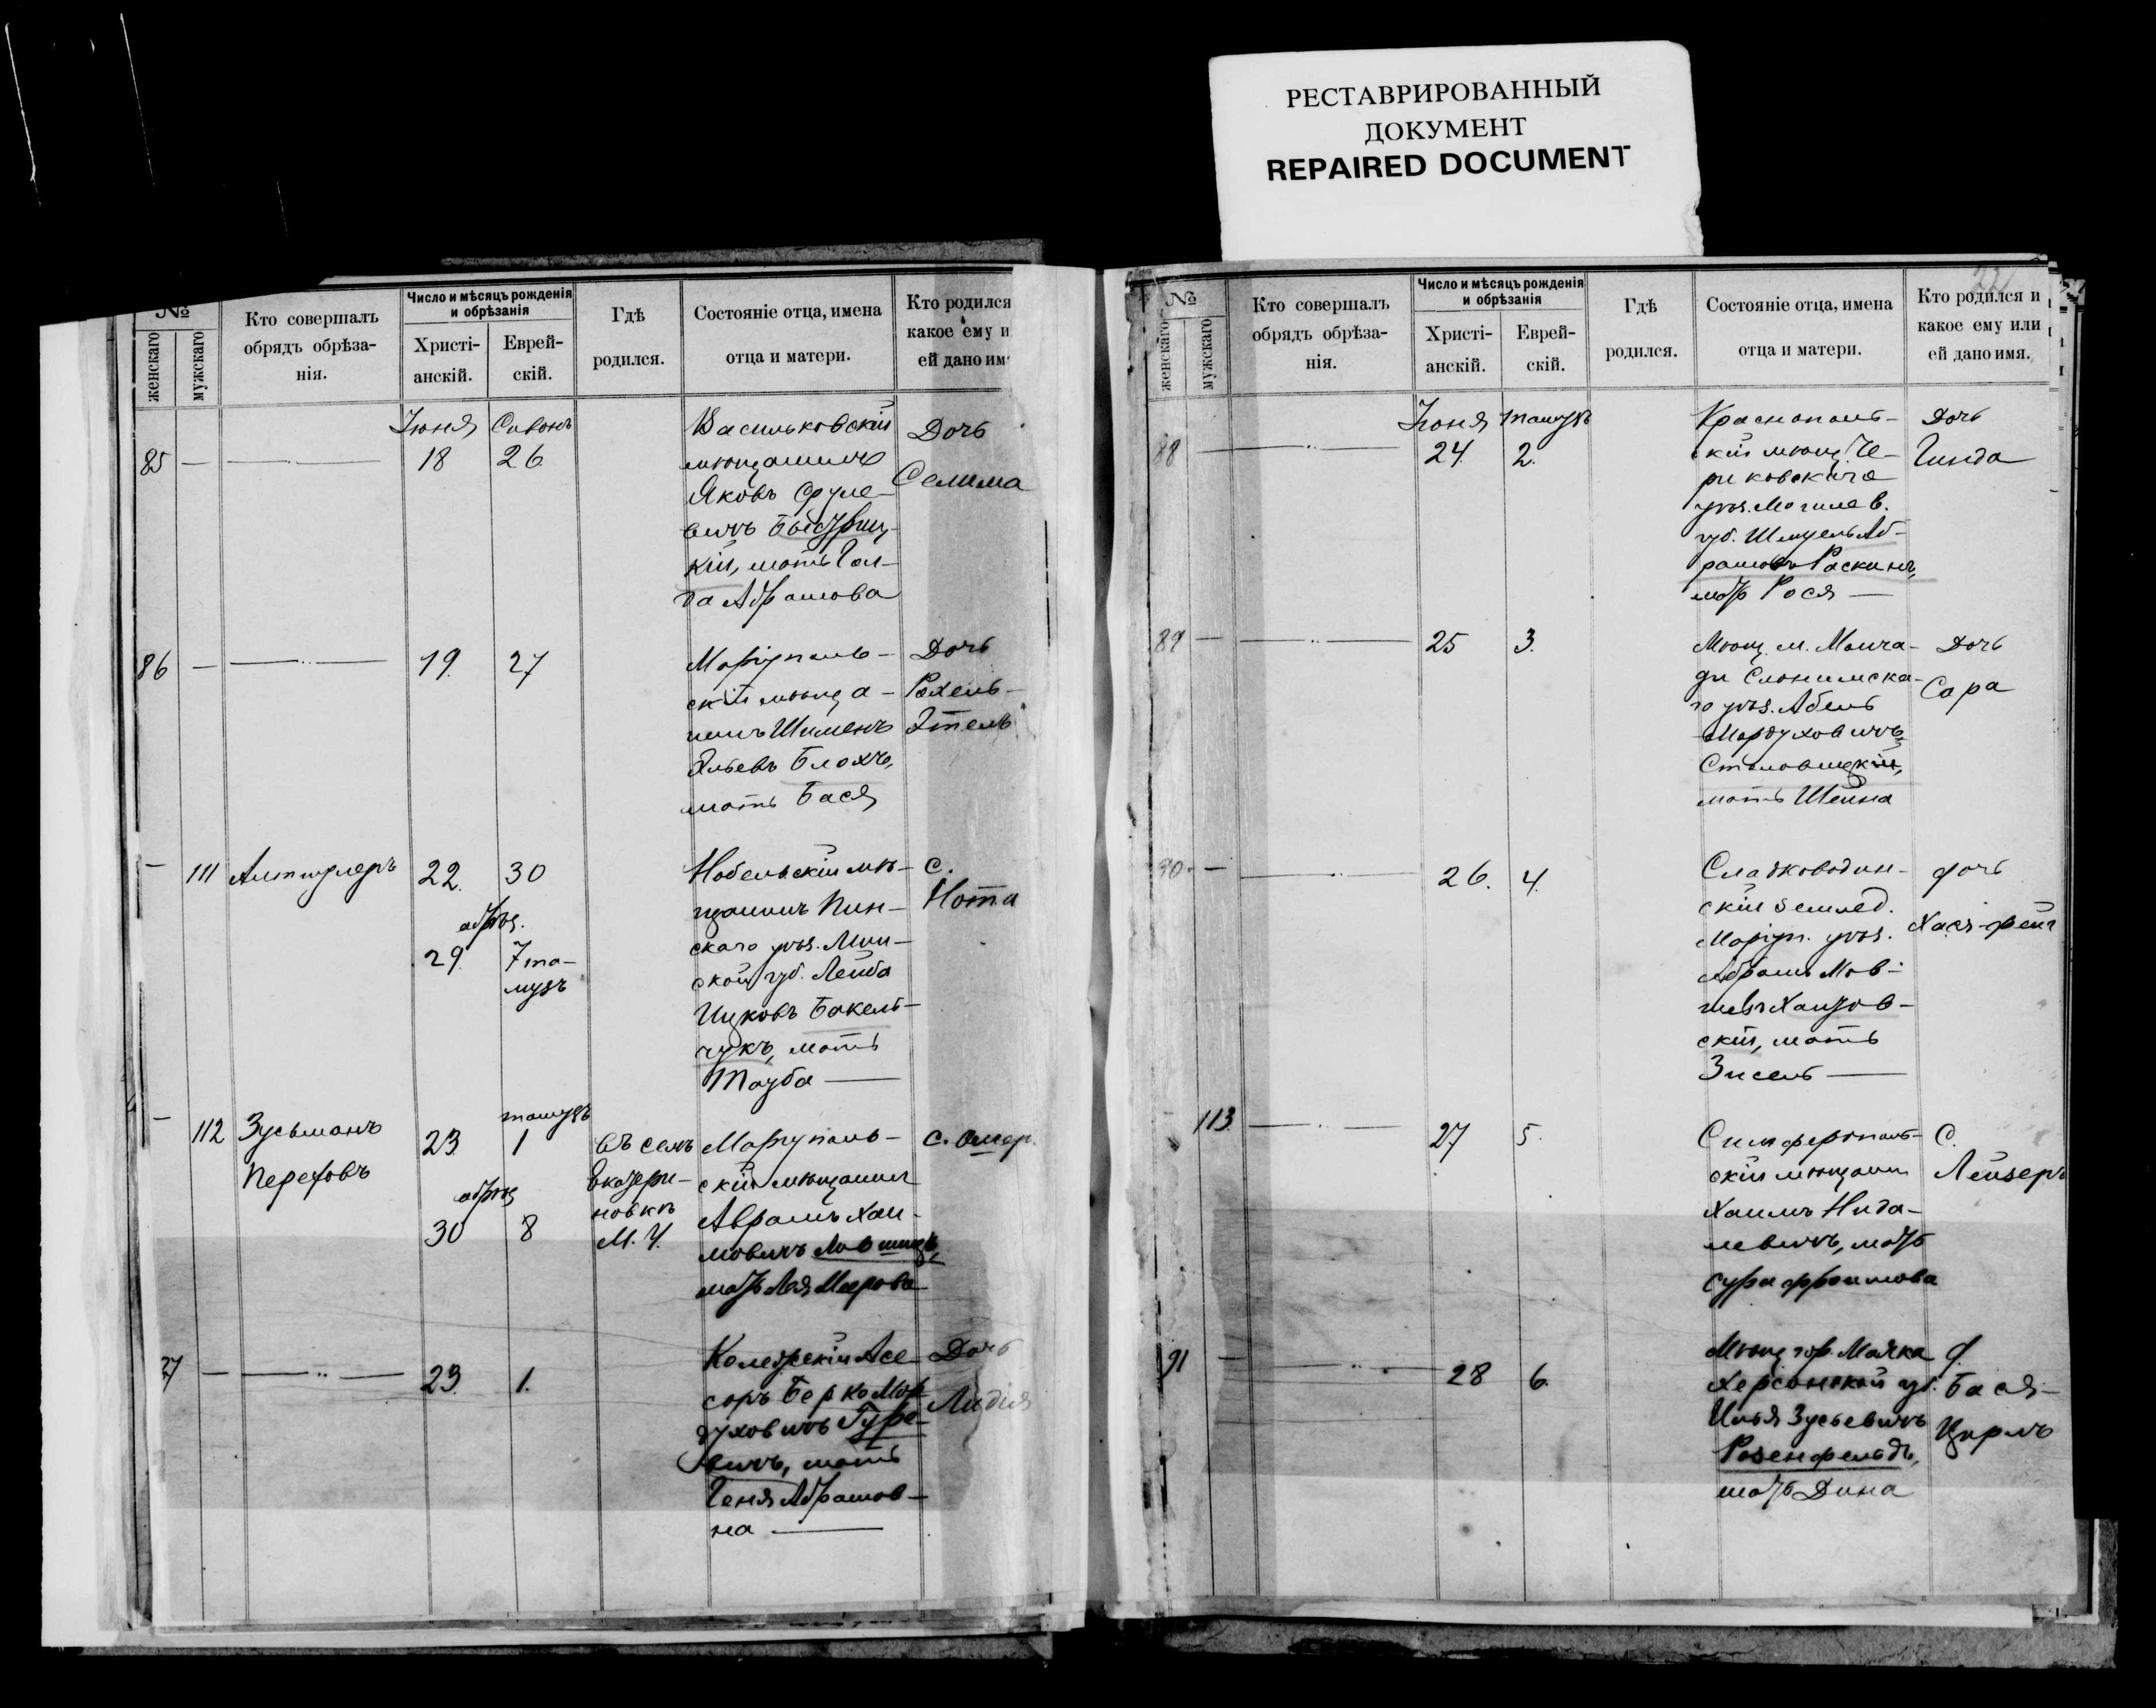 РЕСТАВРИРОВАННЫЙ
ДОКУМЕНТ
REPAIRED DOCUMENT
№
женскаго
мужскаго
Кто совершалъ
обрядъ обрѣза-
нія.
Число и мѣсяцъ рожденія
и обрѣзанія
Христі-
анскій.
Еврей-
скій.
Гдѣ
родился.
Состояніе отца, имена
отца и матери.
Кто родился
какое ему и
ей дано им
Іюня Сивонъ
85 — 18 26
Васильковскій
мѣщанинъ
Яковъ Сруле-
вичъ Быстриц-
кій, мать Гол-
да Абрамова
Дочь
Селима
86 — 19. 27
Маріуполь-
скій мѣща-
нинъ Шименъ
Эльевъ Блохъ,
мать Бася
Дочь
Рохель-
Этель
— 111 Альтшулеръ 22. 30
обрѣз.
29. 7 та-
музъ
Нобельскій мѣ-
щанинъ Пин-
скаго уѣз. Мин-
ской губ. Лейба
Ицковъ Бакель-
чукъ, мать
Тауба —
С.
Нота
— 112 Зусьманъ
Переховъ
тамузъ
23 1
обрѣз
30 8
въ селѣ
Екатери-
новкѣ
М. У.
Маріуполь-
скій мѣщанин
Аврамъ Хаи-
мовичъ Лившицъ,
мать Лея Меерова
С. Омер.
7 — 23. 1.
Колежскій Асе-
соръ Берко Мор-
духовичъ Гуре-
вичъ, мать
Геня Абрамов-
на —
Дочь
Лидія
22
№
женскаго
мужскаго
Кто совершалъ
обрядъ обрѣза-
нія.
Число и мѣсяцъ рожденія
и обрѣзанія
Христі-
анскій.
Еврей-
скій.
Гдѣ
родился.
Состояніе отца, имена
отца и матери.
Кто родился и
какое ему или
ей дано имя.
Іюня тамузъ
88 — 24. 2.
Краснополь-
скій мѣщ. Че-
риковскаго
уѣз. Могилев.
губ. Шмуель Аб-
рамовъ Раскинъ,
мать Рося —
Дочь
Гинда
89 — 25 3.
Мѣщ. м. Молча-
ди Слонимска-
го уѣз. Абель
Мордуховичъ
Столовицкій,
мать Шейна
Дочь
Сара
90. — 26. 4.
Сладководин-
скій землед.
Маріуп. уѣз.
Абрамъ Мов-
шевъ Хаитов-
скій, мать
Зисель —
дочь
Хася-Фейг
113. 27 5.
Симферополь-
скій мѣщанин
Хаимъ Нида-
левичъ, мать
Сура Фроимова
С.
Лейзеръ
91 — 28 6.
Мѣщ. гор. Маяка
Херсонской губ.
Илья Зусьевичъ
Розенфельдъ,
мать Дина
д.
Бася-
Цирль